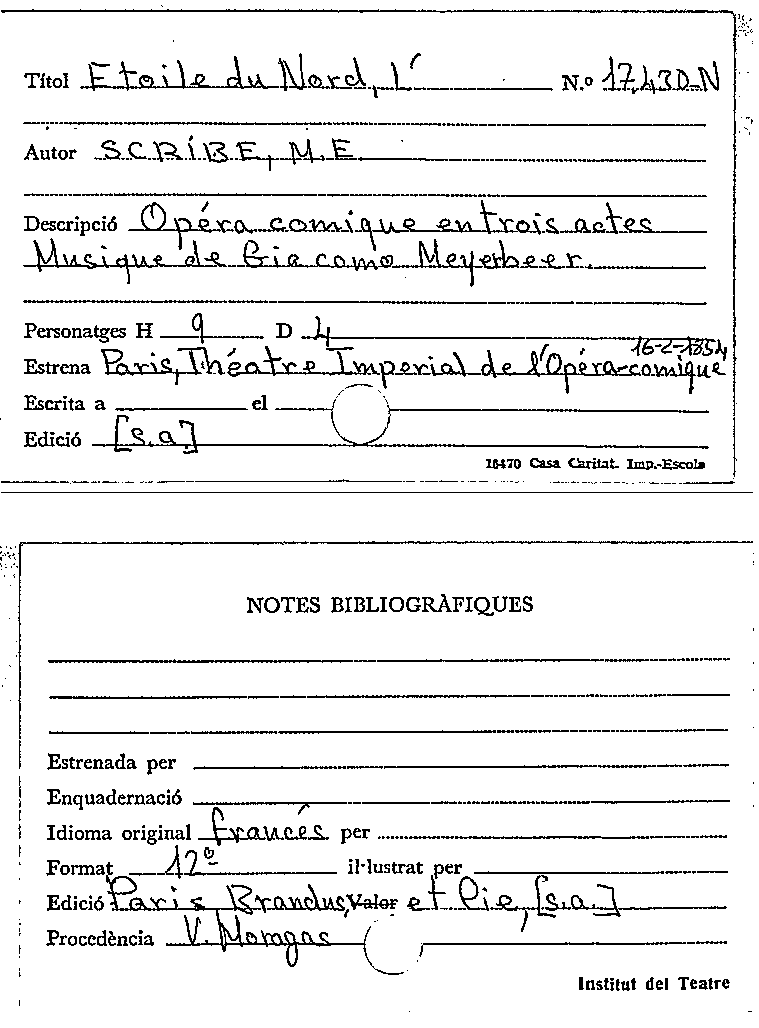 Títol Etoile du Nord, L' N.º 17.430-N
Autor SCRIBE, M.E.
Descripció Opéra comique en trois actes
Musique de Giacomo Meyerbeer.
Personatges H 9 D 4
16-2-1854
Estrena Paris, Théatre Imperial de l'Opéra-comique
Escrita a el
Edició [s.a.]
16470 Casa Caritat. Imp.-Escola
NOTES BIBLIOGRÀFIQUES
Estrenada per
Enquadernació
Idioma original francés per
Format 12º il·lustrat per
Edició Paris Brandus, Valor et Cie, [s.a.]
Procedència V. Moragas
Institut del Teatre